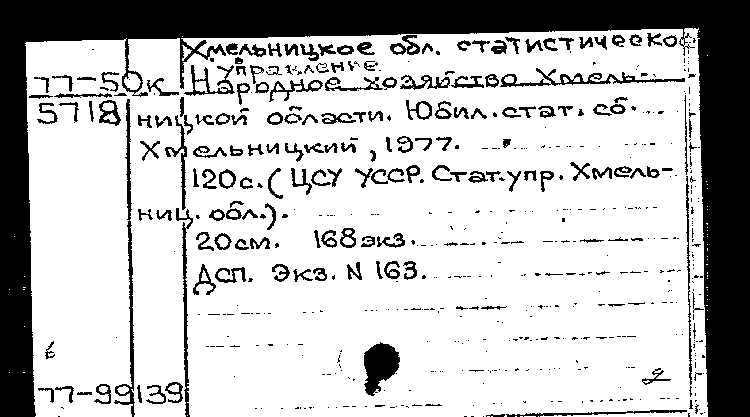 Хмельницкое обл. статистическое
управление
77-50к Народное хозяйство Хмель-
5718 ницкой области. Юбил. стат. сб.
Хмельницкий, 1977.
120с. (ЦСУ УССР. Стат. упр. Хмель-
ниц. обл.).
20см. 168 экз.
Дсп. Экз. N 163.
77-99139